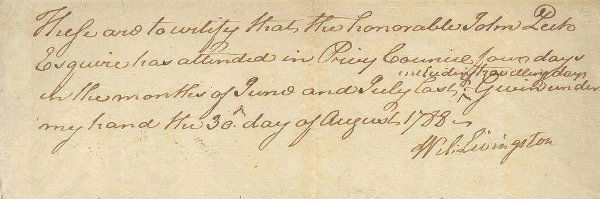 These are to certify that the honorable John Peck
Esquire has attended in Privy Council four days
including travelling days
in the months of June and July last. Given under
my hand the 30th day of August 1788
Wil: Livingston